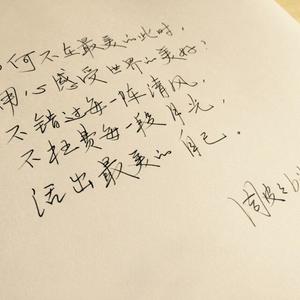 何不在最美的此时,
用心感受世界的美好,
不错过每一阵清风,
不枉费每一段月光,
活出最美的自己。